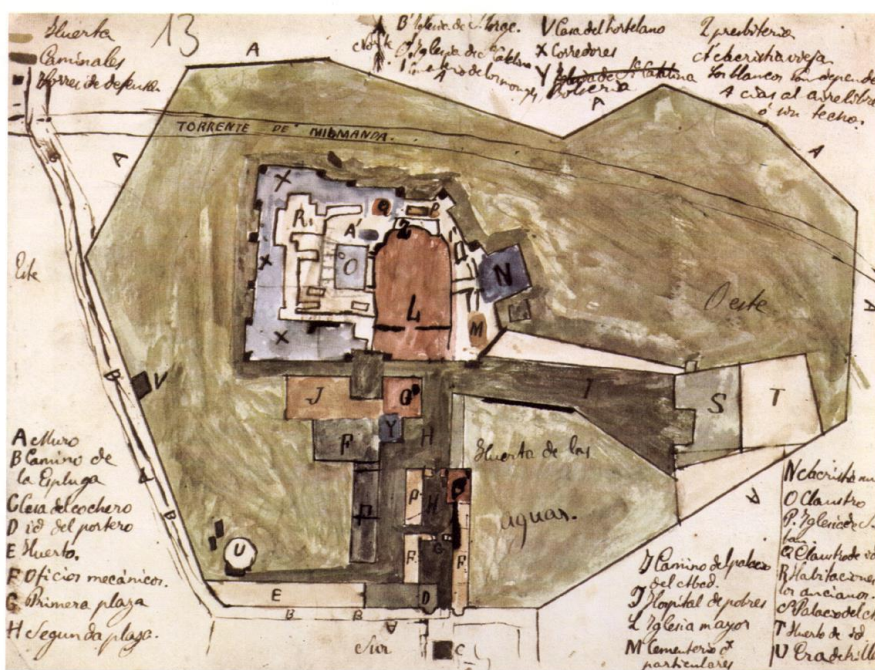 Huerta
Caminales
Torres de defensa.
13
Norte
B' Iglesia de S. Jorge.
O' Iglesia de Sta Catalina
V Casa del hortelano
X Corredores
Y Iglesia de Sta Catalina
Bolseria
Z presbiterio
A' Sacristia vieja.
Los blancos son dependen
cias al aire libre
ó sin techo.
A
A
A
A
A
A
A
A
TORRENTE DE MILMANDA.
Este
Oeste
Sur
X
X
X
R.
A'
Q
P
Z
O
L
N
M
V
B
B
B
B
B
J
O'
Y
F
H
I
S
T
Huerta de las
aguas.
F
H
F
G
F
U
E
D
C
A Muro
B Camino de
la Espluga
C Casa del cochero
D id del portero
E Huerto.
F Oficios mecánicos.
G Primera plaza
H Segunda plaza.
I Camino del palacio
del Abad.
J Hospital de pobres
L Iglesia mayor
M Cementerio de
particulares
N Sacristía
O Claustro
P. Iglesia de S.
Q Claustro de id
R Habitaciones
los ancianos.
S Palacio del
T Huerto de id.
U Era de trilla